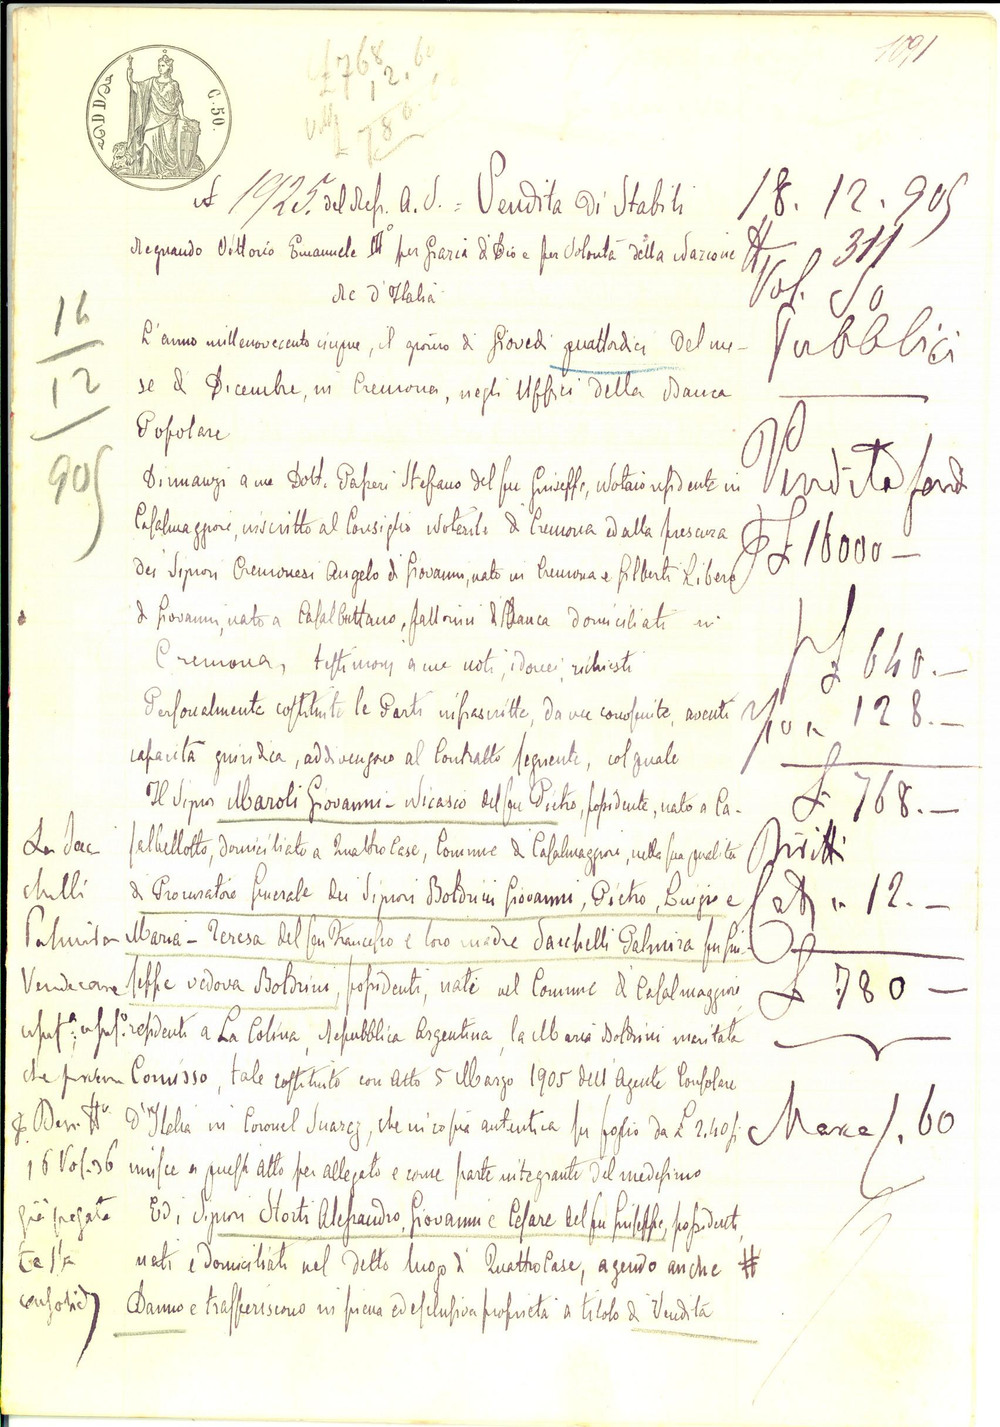 1091
£ 768.60
12.
780
C. 50.
N 1925. del Rep. A. V. = Vendita di Stabili
Regnando Vittorio Emanuele III° per Grazia di Dio e per Volontà della Nazione
Re d'Italia
L'anno millenovecento cinque, il giorno di Giovedì quattordici del me-
se di Dicembre, in Cremona, negli Uffici della Banca
Popolare
Dinnanzi a me Dott. Stefano del fu Giuseppe, Notaio residente in
Casalmaggiore, inscritto al Consiglio Notarile di Cremona ed alla presenza
dei Signori Cremonesi Angelo di Giovanni, nato in Cremona e Gilberti Libero
di Giovanni, nato a Casalbuttano, fattorini di Banca domiciliati in
Cremona, testimonj a me noti, idonei, richiesti
Personalmente costituite le Parti infrascritte, da me conosciute, aventi
capacità giuridica, addivengono al Contratto seguente, col quale
Il Signor Maroli Giovanni-Nicasio del fu Pietro, possidente, nato a Ca-
salbellotto, domiciliato a Quattro Case, Comune di Casalmaggiore, nella sua qualità
di Procuratore Generale dei Signori Boldrini Giovanni, Pietro, Luigi e
Maria-Teresa del fu Francesco e loro madre Sacchelli Palmira fu Giu-
seppe vedova Boldrini, possidenti, nati nel Comune di Casalmaggiore,
residenti a La Colina, Repubblica Argentina, la Maria Boldrini maritata
Comisso, tale costituito con Atto 5 Marzo 1905 dell'Agente Consolare
d'Italia in Coronel Suarez, che in copia autentica su foglio da £ 2.40 si
unisce a quest'atto per allegato e come parte integrante del medesimo
Ed i Signori Storti Alessandro, Giovanni e Cesare del fu Giuseppe, possidenti,
nati e domiciliati nel detto luogo di Quattro Case, agendo anche #
Danno e trasferiscono in piena ed esclusiva proprietà a titolo di Vendita
14
12
905
La Sac
chelli
Palmira
Vende come
che
# 
16 Vol. 36
già pagata
18. 12. 905
N 311
Vol. 50
Pubblici
Vendita fondi
£ 16000 —
£ 640. —
128. —
£ 768. —
Diritti
Cat. " 12. —
£ 780 —
Marca 1.60